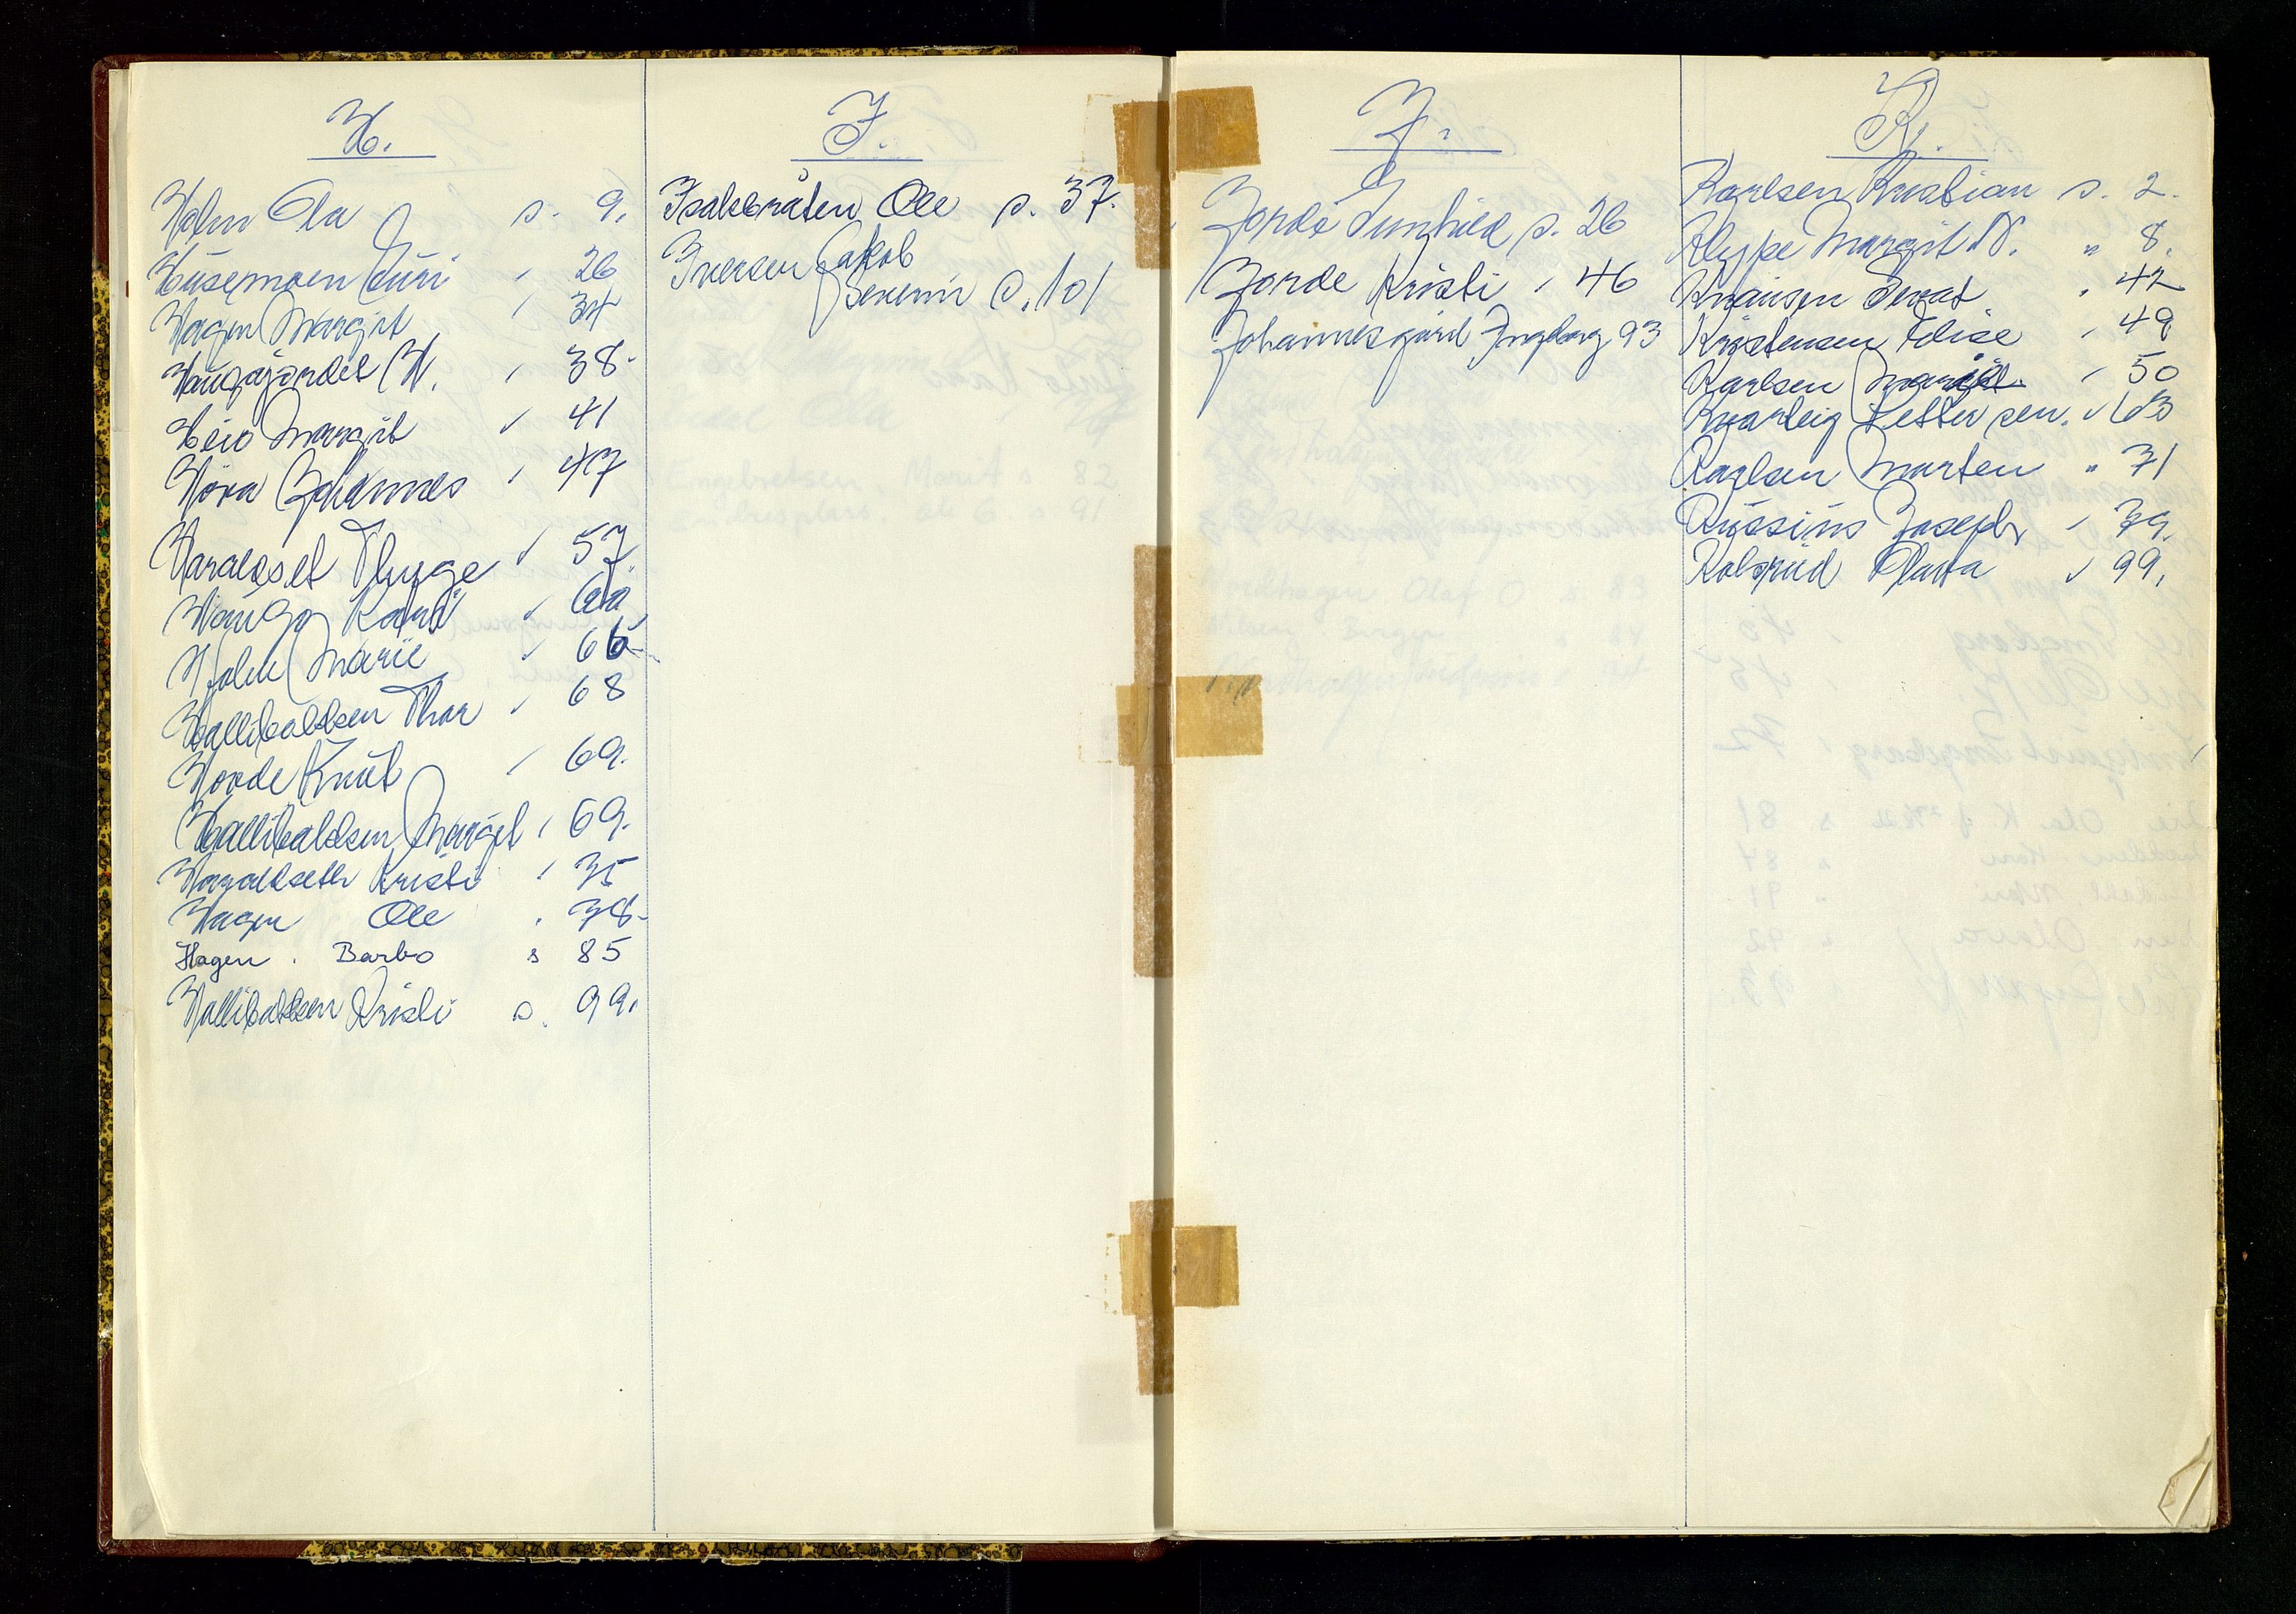 H.
Holm Ola s. 9.
Husemoen Guri " 26
Hagen Margit " 34
Haugsjordet H. " 38.
Heio Margit " 41
Høva Johannes " 47
Haraldset Thyge " 57.
Hauga Kari "
Holm Marie " 66
Hallibaldsen Thor " 68
Hovde Knut " 69.
Hallibaldsen Margit " 69.
Haraldseth Kristi " 75
Hagen Ole " 78.
Hagen. Barbo s 85
Hallibaldsen Kristi s. 99.
I.
Isakbråten Ole s. 37.
Iversen Jakob
Severin s. 101
J.
Jorde Gunhild s. 26
Jorde Kristi " 46
Johannesgård Ingeborg 93
K.
Karlsen Kristian s. 2.
Klype Margit N. " 8.
Knutsen " 42
Kristensen Elise " 49
Karlsen " 50
Kvarteig Petter sen. " 63
Karlsen Marten " 71
Kussius Joseph " 79.
Kolsrud Olava " 99.